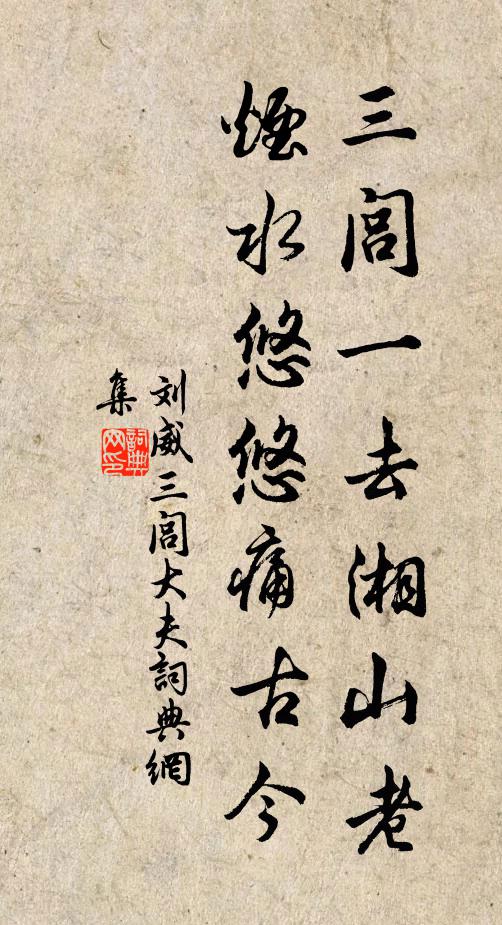 三闾一去湘山老
煙水悠悠痛古今
刘威三闾大夫詞典網
集
詞典网印